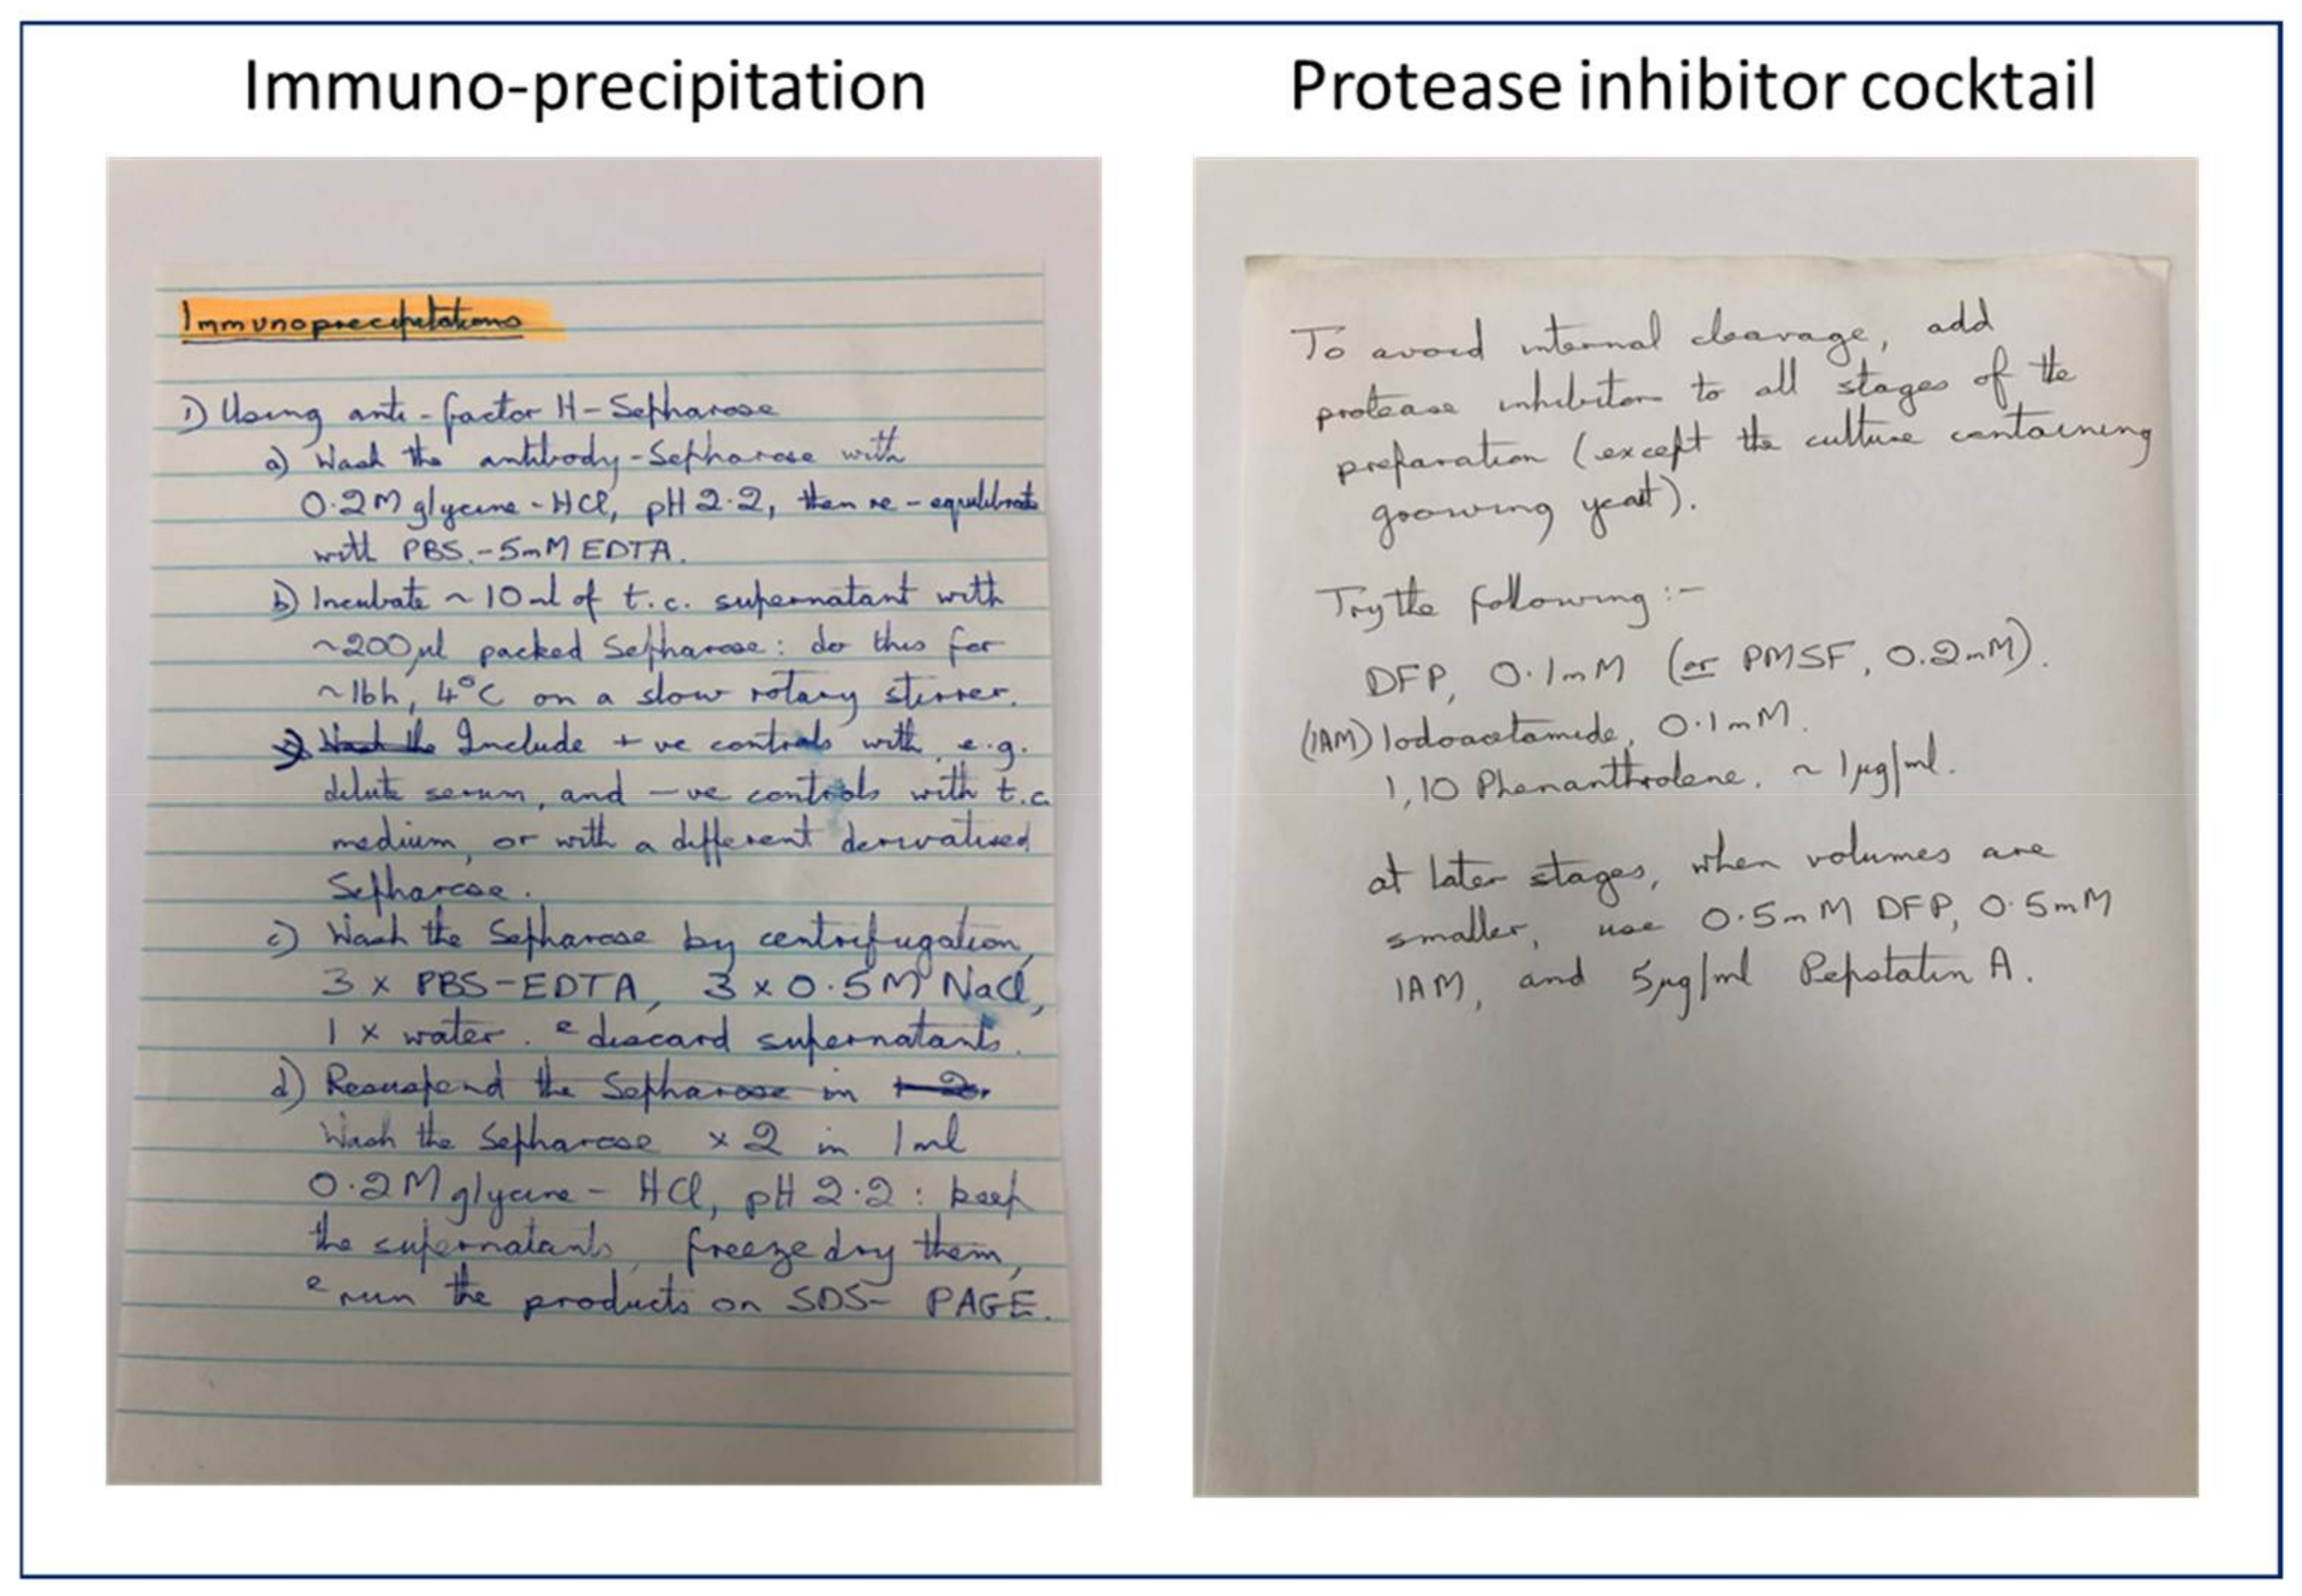 Immuno-precipitation
Immunoprecipitations
1) Using anti-factor H-Sepharose
a) Wash the antibody-Sepharose with
0.2M glycine-HCl, pH 2.2, then re-equilibrate
with PBS.-5mM EDTA.
b) Incubate ~10ml of t.c. supernatant with
~200µl packed Sepharose: do this for
~16h, 4°C on a slow rotary stirrer.
Wash the Include +ve controls with, e.g.
dilute serum, and -ve controls with t.c.
medium, or with a different derivatised
Sepharose.
c) Wash the Sepharose by centrifugation,
3 x PBS-EDTA, 3 x 0.5M NaCl,
1 x water. & discard supernatants.
d) Resuspend the Sepharose in 1-2
Wash the Sepharose x2 in 1ml
0.2M glycine-HCl, pH 2.2: keep
the supernatants, freeze dry them,
& run the products on SDS-PAGE.
Protease inhibitor cocktail
To avoid internal cleavage, add
protease inhibitor to all stages of the
preparation (except the culture containing
growing yeast).
Try the following:-
DFP, 0.1mM (or PMSF, 0.2mM).
(IAM) Iodoacetamide, 0.1mM.
1,10 Phenanthrolene, ~1µg/ml.
at later stages, when volumes are
smaller, use 0.5mM DFP, 0.5mM
IAM, and 5µg/ml Pepstatin A.